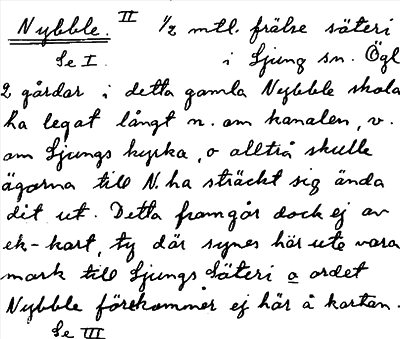 Nybble. II 1/2 mtl. frälse säteri
Se I. i Ljung sn. Ögl
2 gårdar i detta gamla Nybble skola
ha legat långt n. om kanalen, v.
om Ljungs kyrka, o alltså skulle
ägorna till N. ha sträckt sig ända
dit ut. Detta framgår dock ej av
ek-kart, ty där synes här ute vara
mark till Ljungs Säteri o ordet
Nybble förekommer ej här å kartan.
Se III